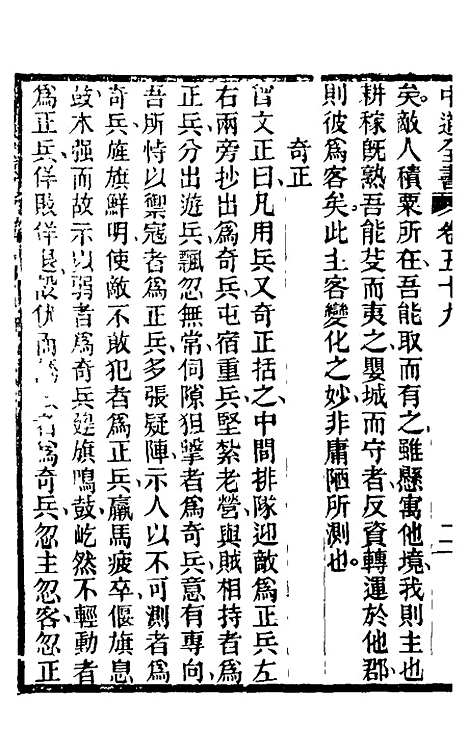 中道全書　卷五十九　二
矣。敵人積粟所在吾能取而有之雖懸寓他境、我則主也
耕稼旣熟吾能芟而夷之、嬰城而守者、反資轉運於他郡、
則彼爲客矣。此主客變化之妙、非庸陋所測也。
奇正
曾文正曰、凡用兵又奇正括之、中間排隊迎敵爲正兵左
右兩旁抄出爲奇兵、屯宿重兵堅紮老營與賊相持者爲
正兵、分出遊兵飄忽無常伺隙狙擊者爲奇兵、意有專向
吾所恃以禦寇者爲正兵、多張疑陣示人以不可測者爲
奇兵、旌旗鮮明使敵不敢犯者爲正兵、羸馬疲卒偃旗息
鼓、本强而故示以弱者爲奇兵、建旗鳴鼓屹然不輕動者
爲正兵、佯敗佯退設伏而誘 者爲奇兵、忽主忽客忽正